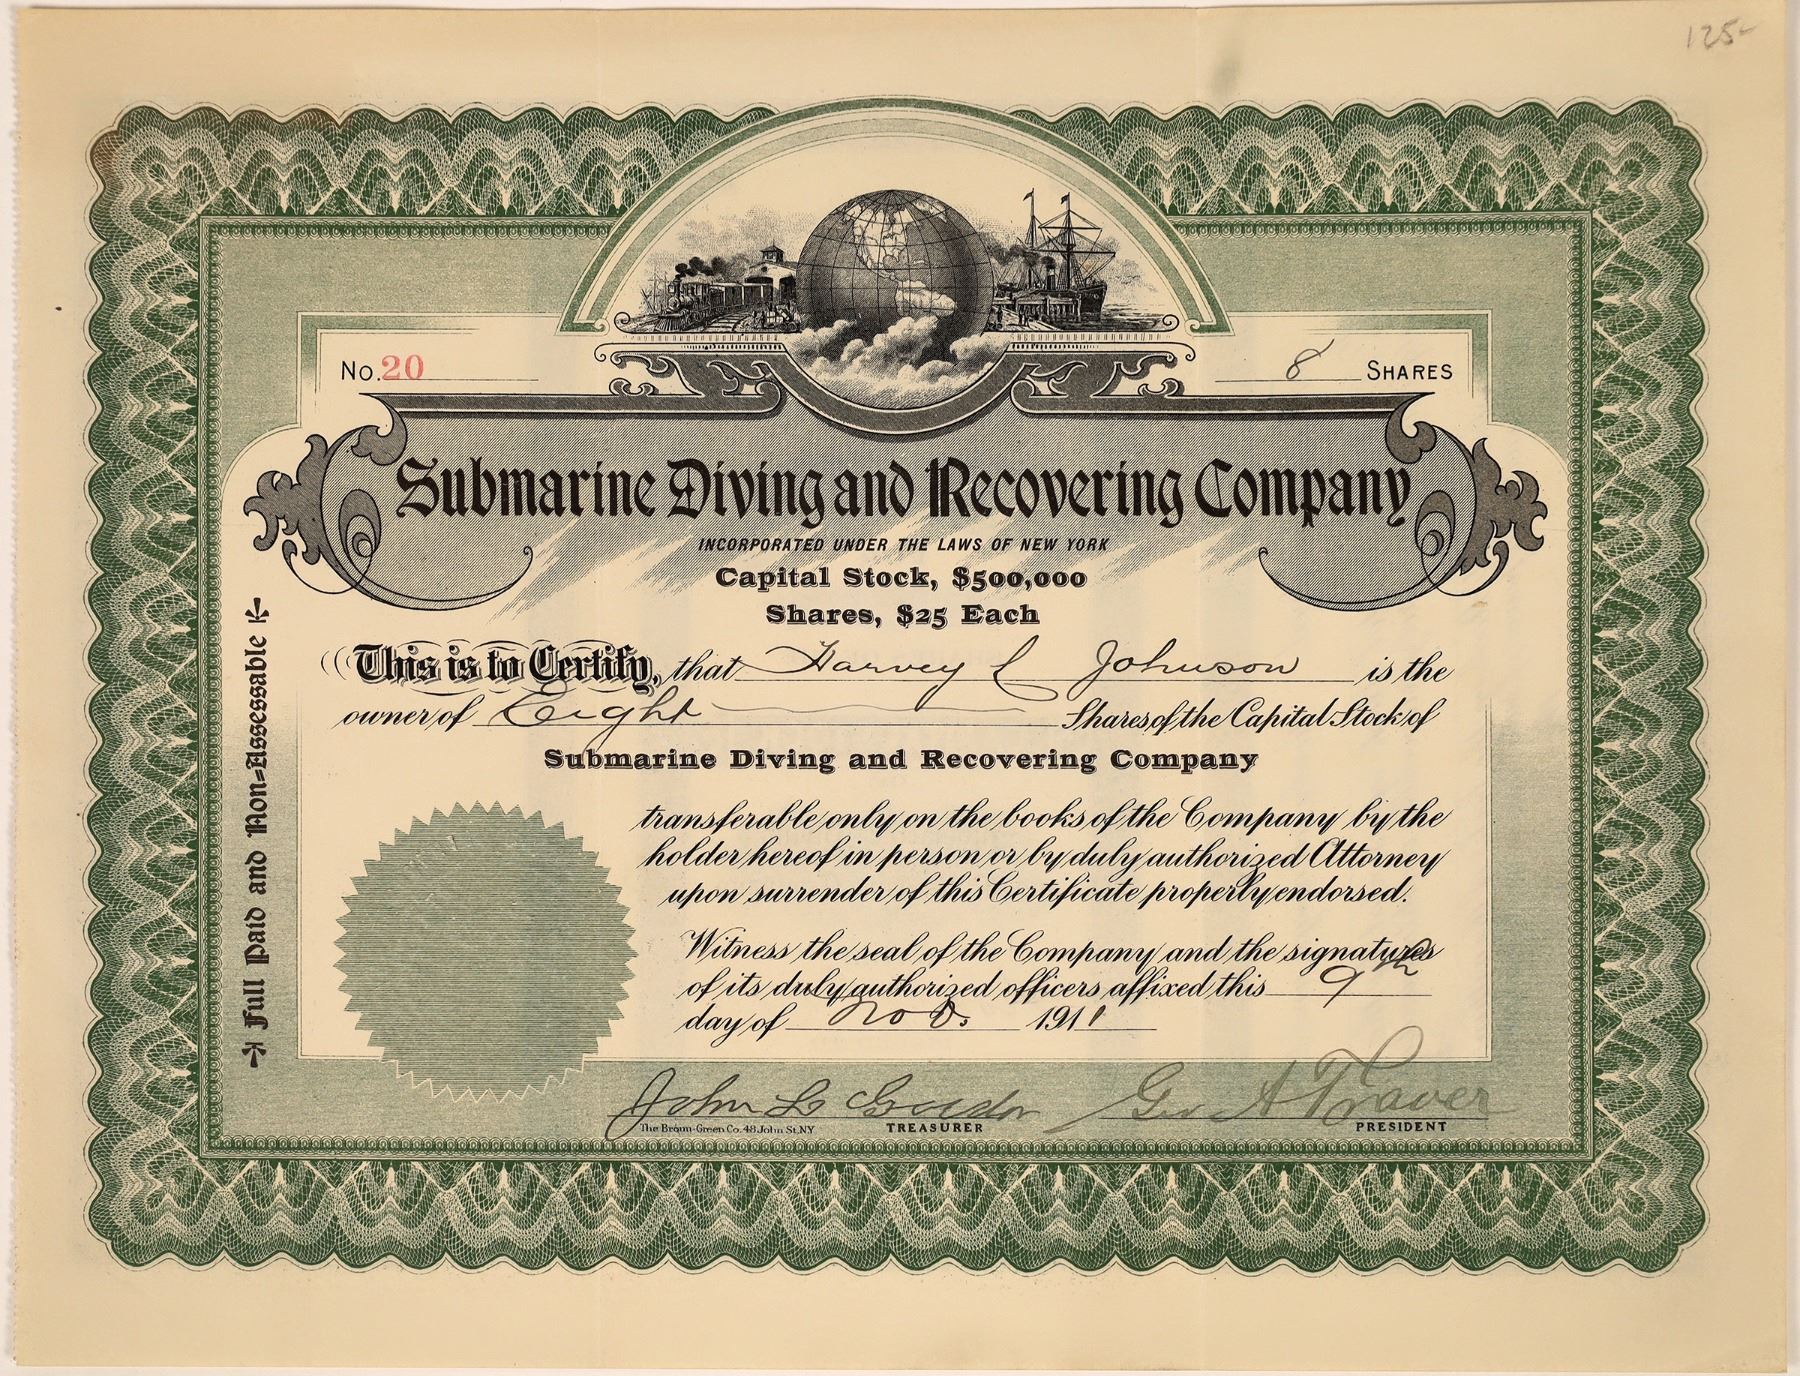 125-
No. 20
8 SHARES
Submarine Diving and Recovering Company
INCORPORATED UNDER THE LAWS OF NEW YORK
Capital Stock, $500,000
Shares, $25 Each
This is to Certify, that Harvey C Johnson is the
owner of Eight Shares of the Capital Stock of
Submarine Diving and Recovering Company
transferable only on the books of the Company by the
holder hereof in person or by duly authorized Attorney
upon surrender of this Certificate properly endorsed.
Witness the seal of the Company and the signatures
of its duly authorized officers affixed this 9th
day of Nov. 1911
Full Paid and Non-Assessable
John L Geo A Traver
The Broun-Green Co. 48 John St. NY TREASURER PRESIDENT